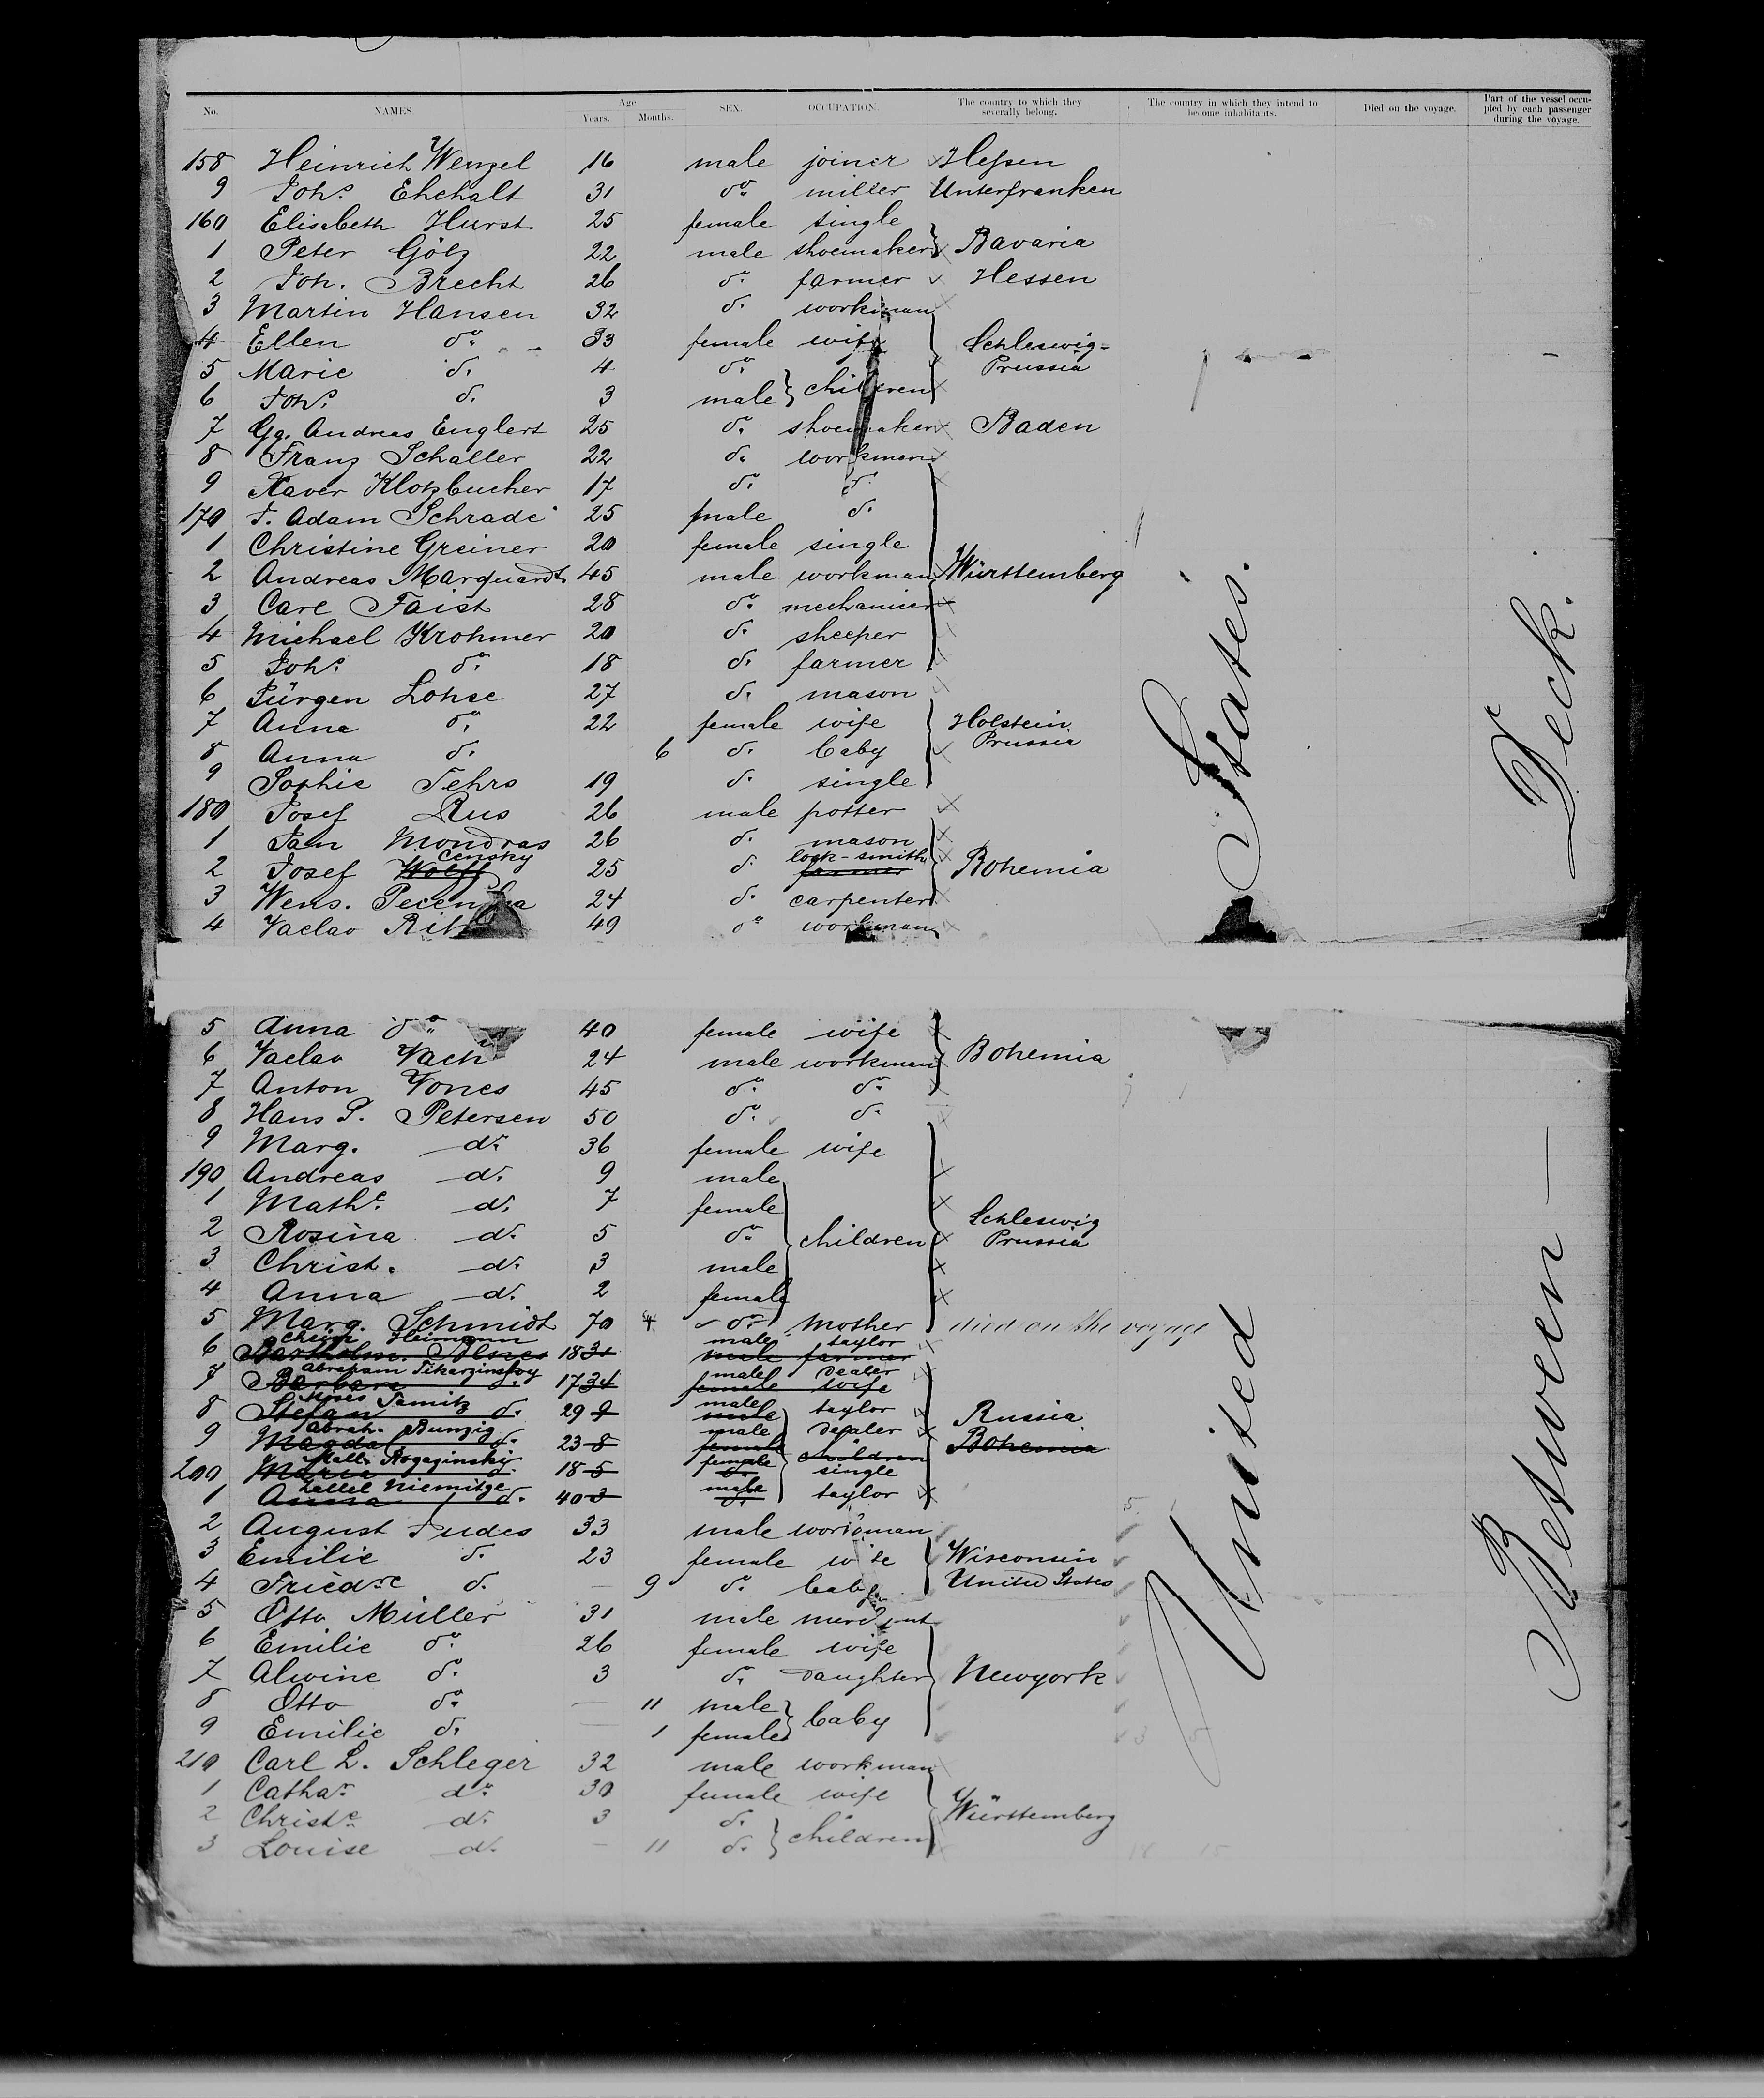 No. NAMES Age Years. Months. SEX. OCCUPATION. The country to which they severally belong. The country in which they intend to become inhabitants. Died on the voyage. Part of the vessel occupied by each passenger during the voyage.
158 Heinrich Wenzel 16 male joiner Hessen
9 Johs. Ehehalt 31 do. miller Unterfranken
160 Elisabeth Hurst 25 female single
1 Peter Götz 22 male shoemaker Bavaria
2 Joh. Brecht 26 d. farmer Hessen
3 Martin Hansen 32 d. workman
4 Ellen do. 33 female wife Schleswig-
5 Marie d. 4 do. Prussia
6 Johs. d. 3 male children
7 Gg. Andreas Englert 25 d. shoemaker Baden
8 Franz Schaller 22 d. workman
9 Xaver Klotzbucher 17 d. d.
170 J. Adam Schrade 25 male d.
1 Christine Greiner 20 female single
2 Andreas Marquardt 45 male workman Württemberg
3 Carl Faist 28 do. mechanicer
4 Michael Krohmer 20 d. sheeper
5 Johs. do. 18 d. farmer
6 Jürgen Lohse 27 d. mason
7 Anna do. 22 female wife Holstein
8 Anna d. 6 d. baby Prussia
9 Sophie Fehrs 19 d. single
180 Josef Rus 26 male potter
1 Jan Mondras 26 d. mason
2 Josef Wolff Censky 25 d. farmer lock-smith Bohemia
3 Wens. 24 d. carpenter
4 Vaclav 49 do workman
5 Anna do 40 female wife
6 Vaclav Vach 24 male workman Bohemia
7 Anton Vones 45 do. do.
8 Hans P. Petersen 50 do. d.
9 Marg. do. 36 female wife
190 Andreas d. 9 male
1 Mathe. d. 7 female
2 Rosina d. 5 do. children Schleswig Prussia
3 Christ. d. 3 male
4 Anna d. 2 female
5 Marg. Schmidt 70 do. Mother died on the voyage
6 Heimann 18 31 male taylor
male farmer
7 Abraham 17 34 male Dealer
Barbara d. female wife
8 Moses Jamitz 29 9 male taylor Russia
Stefan d. male
9 Abrah. Bunzig 23 8 male Dealer
Magda d. female children Bohemia
200 18 5 female single
Maria d.
1 Niemitze 40 3 male taylor
Anna d. d.
2 August Judes 33 male workman
3 Emilie d. 23 female wife Wisconsin
4 Friedre d. 9 do. baby United States
5 Otto Müller 31 male merchant
6 Emilie do. 26 female wife
7 Alwine d. 3 d. daughter Newyork
8 Otto do. 11 male baby
9 Emilie d. 1 female
210 Carl L. Schleger 32 male workman
1 Cathar do. 30 female wife
2 Christe d. 3 d. children Württemberg
3 Louise d. 11 d.
United States.
Between Deck.